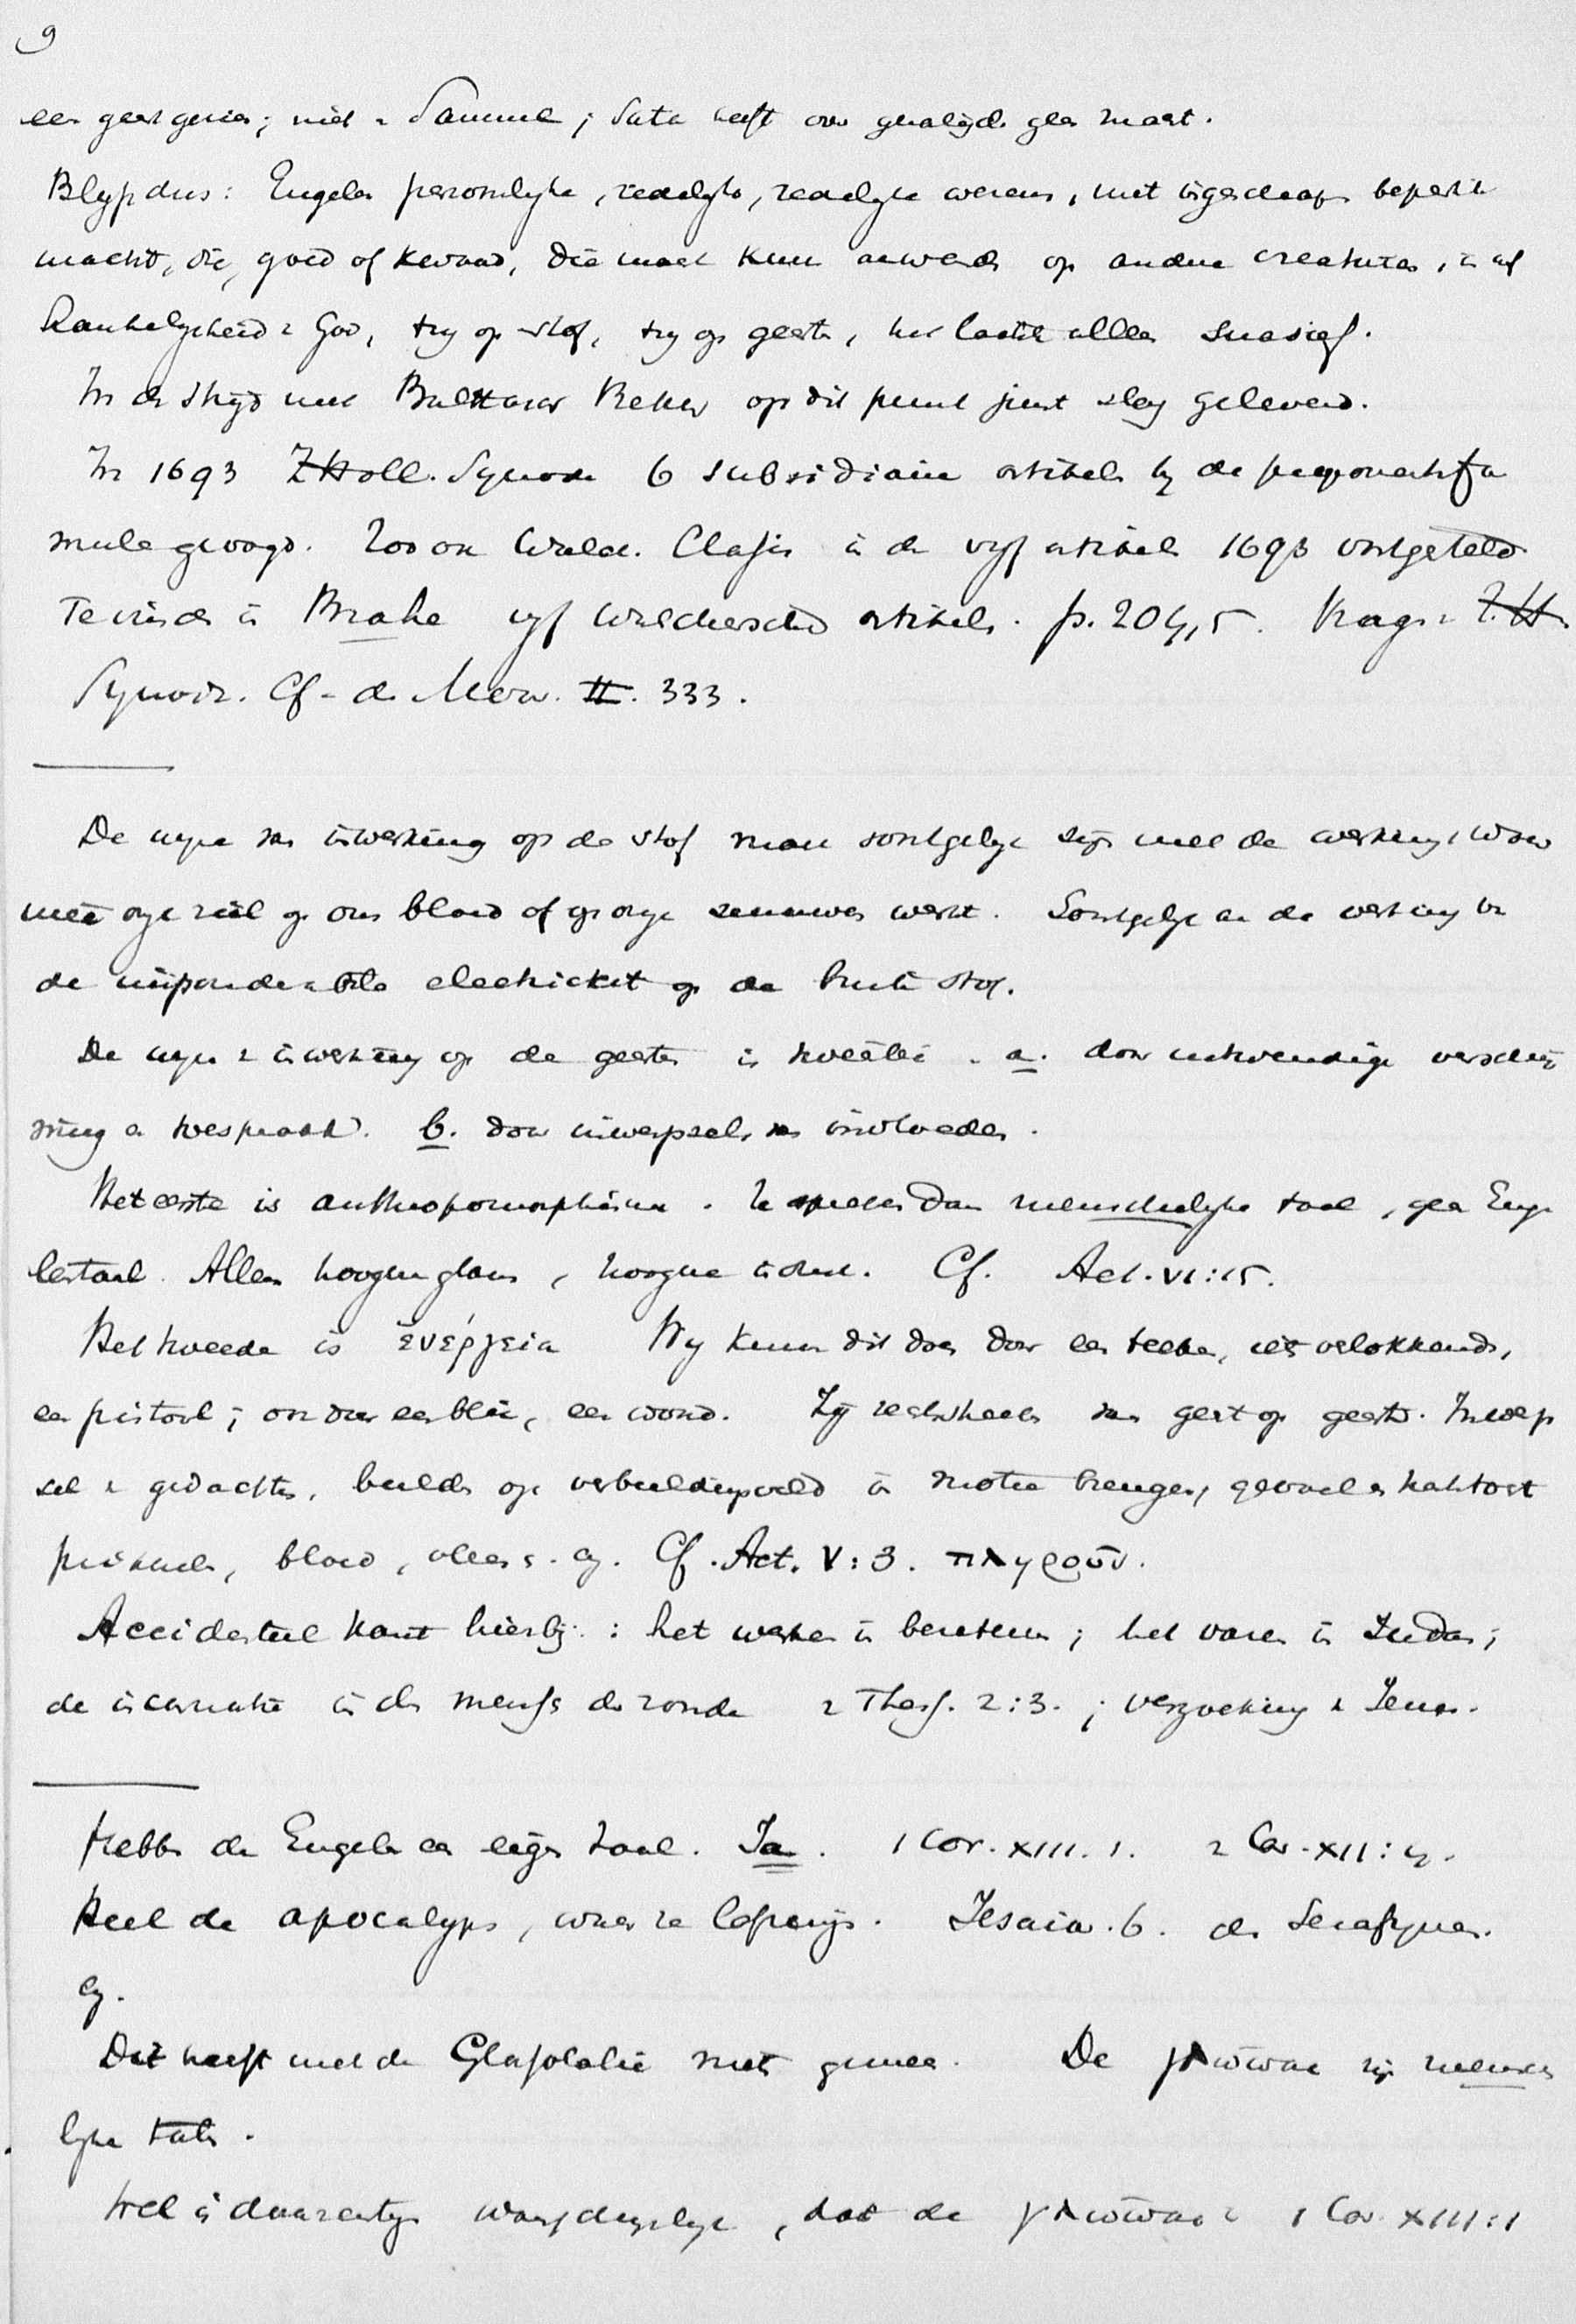 9
een geest gezien; niet v Samuel; Satan heeft over zaligen geen macht.
Blijft dus: Engelen persoonlyke, redelyke, zedelyke wezens, met ingeschapen beperkte
macht, die, goed of kwaad, die macht kunn aanwenden op andere creaturen, in af
hankelykheid v God, tzy op stof, tzy op geesten, het laatste alleen suasief.
In de stryd met Balthasar Bekker op dit punt juist slag geleverd.
In 1693 Z Holl. Synode 6 subsidiaire artikels by de
mule gevoegd. Zoo ook Walch. Classis in de vyf artikels 1693 vastgesteld
Te vinden in Brahe vyf Walchersche artikels. p. 204,5. v Z. H.
Synode. Cf. de Moor. II. 333.
De wyze van inwerking op de stof moet soortgelyk zijn met de werking, waar
mee onze ziel op ons bloed of op onze zenuwen werkt. Soortgelyk aan de werking vn
de imponderabele electriciteit op de brute stof.
De wyze v inwerking op de geesten is tweeërlei. a. door uitwendige verschij
ning en toespraak. b. door inwerpselen van invloeden.
Het eerste is anthropomorphisme. Ze spreken dan menschelyke taal, geen Enge
lentaal. Alleen hooger glans, hooger indruk. Cf. Act. VI:15.
Het tweede is ἐνέργεια Wy kunn dit doen door een teeken, iets verlokkends,
een pistool; ook door een blik, een woord. Zij rechtstreeks van geest op geest. Inwerp
sel v gedachten, beelden op verbeeldingsveld in motie brengen, gevoel en hartstocht
prikkelen, bloed, alles s. q. Cf. Act. V:3. πληροῦν.
Accidenteel komt hierbij: het werken in bezetenen; het varen in Judas;
de incarnatie in den mensch der zonde 2 Thess. 2:3. ; verzoeking v Jezus.
Hebbn de Engelen een eigen taal. Ja. 1 Cor. XIII. 1. 2 Cor. XII: 4.
Heel de apocalyps, waar ze lofprijzn. Jesaia. 6. de Serafynen.
Dit heeft met de Glossolalie niets gemeen. De γλῶσσαι zijn mensche
lyke talen.
Wel is daarentegen waarschynlyk, dat de γλῶσσαι v 1 Cor. XIII:1